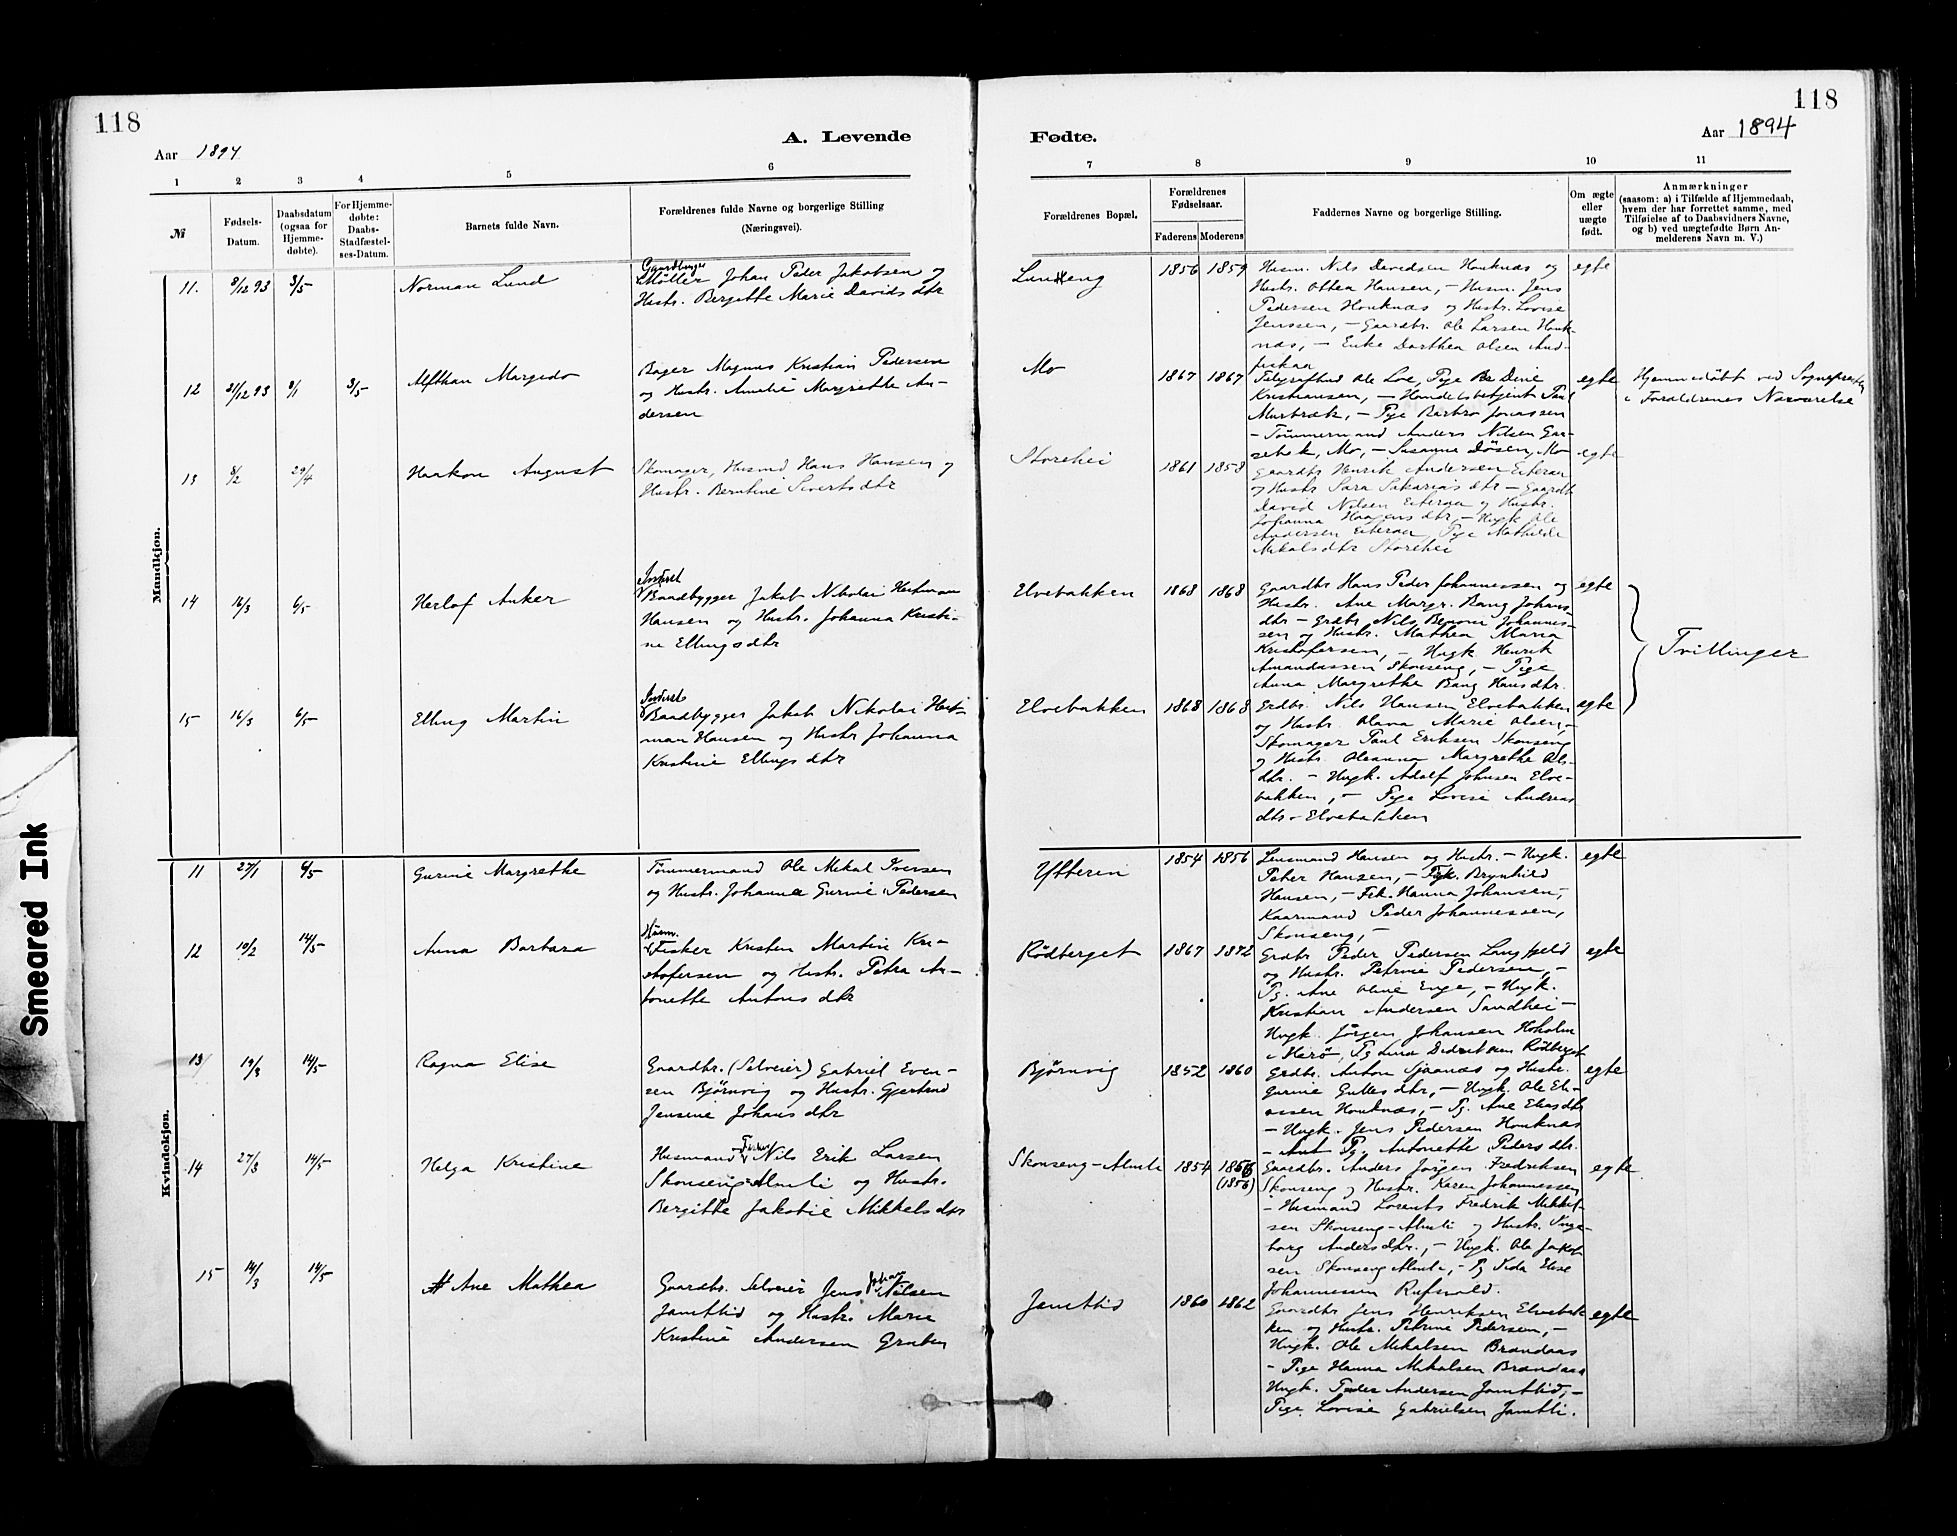 118
118
A. Levende
Fødte.
Aar 1894
Aar 1894
1
2
3
4
5
6
7
8
9
10
11
№
Fødsels-
Datum.
Daabsdatum
(ogsaa for
Hjemme-
døbte).
For Hjemme-
døbte:
Daabs-
Stadfæstel-
ses-Datum.
Barnets fulde Navn.
Forældrenes fulde Navne og borgerlige Stilling
(Næringsvei).
Forældrenes Bopæl.
Forældrenes
Fødselsaar.
Faderens
Moderens
Faddernes Navne og borgerlige Stilling.
Om ægte
eller
uægte
født.
Anmærkninger
(saasom: a) i Tilfælde af Hjemmedaab,
hvem der har forrettet samme, med
Tilføielse af to Daabsvidners Navne,
og b) ved uægtefødte Børn An-
melderens Navn m. V.)
Mandkjøn.
11. 8/12 93 3/5 Norman Lund
Gaardbruger
Møller Johan Peder Jakobsen og
Hustr. Bergitte Marie Davidsdtr
Lundeng 1856 1859
Husm. Nils Davidsen Honknæs og
Hustr. Othea Hansen, - Husm. Jens
Pedersen Honknæs og Hustr. Lovise
Jenssen, - Gaardbr. Ole Larsen Honk-
næs, - Enke Dorthea Olsen And-
fiskaa
egte
12 21/12 93 3/5
Bager Magnus Kristian Pedersen
og Hustr. Amalie Margrethe An-
dersen
Mo 1867 1867
Telegrafbud Ole Loe, Pige Dine
Kristiansen, - Handelsbetjent Paul
Murbræk, - Pige Barbro Jonassen
- Tömmermand Anders Nilsen
Mo, - Susanna Mo
egte
Hjemmedøbt ved Sognepresten
i Foraldrenes Nærværelse
13 8/2 29/4 Haakon August
Skomager, Husmd Hans Hansen og
Hustr. Berntine Sivertsdtr
Storehei 1861 1858
Gaardbr Henrik Andersen Eiteraa
og Hustr Sara Sakariasdtr - Gaardbr
David Nilsen Eiteraa og Hustr.
Johanna Haagensdtr, - Ungk Ole
Andersen Eiteraa, Pige Mathilde
Mikalsdtr Storehei
egte
14 16/3 6/5 Herlof Anker
Inderst
Baadbygger Jakob Nikolai Hartman
Hansen og Hustr. Johanna Kristi-
ne Ellingsdtr
Elvebakken 1868 1868
Gaardbr Hans Peder Johannessen og
Hustr. Ane Margr. Bang Johans-
dtr - Grdbr Nils Benoni Johannes-
sen og Hustr. Mathea Maria
Kristofersen, - Ungk Henrik
Amandassen Skonseng, - Pige
Anna Margrethe Bang Hansdtr.
egte
Tvillinger
15 16/3 6/5 Elling Martin
Inderst
Baadbygger Jakob Nikolai Hart-
man Hansen og Hustr Johanna
Kristine Ellingsdtr
Elvebakken 1868 1868
Grdbr. Nils Hansen Elvebakken
og Hustr. Olava Marie Olsen, -
Skomager Paul Eriksen Skonseng
og Hustr. Oleanna Margrethe Ols-
dtr. - Ungk. Adolf Johnsen Elve-
bakken, - Pige Lovise Andreas
dtr - Elvebakken
egte
Kvindekjøn.
11 27/1 6/5 Gurine Margrethe
Tömmermand Ole Mikal Iversen
og Hustr. Johanna Gurine Pedersen
Ytteren 1854 1856
Lensmand Hansen og Hustr. - Ungk.
Peter Hansen, - Frk. Brynhild
Hansen, - Frk. Hanna Johansen, -
Kaarmand Peder Johannessen,
Skonseng, -
egte
12 10/2 14/5 Anna Barbara
Husm.
Fisker Kristen Martin Kri-
stofersen og Hustr. Petra An-
tonette Antonsdtr
Rödberget 1867 1872
Grdbr Peder Pedersen Langfjeld
og Hustr. Petrine Pedersen, -
Pg. Ane Oline Enge, - Ungk.
Kristian Andersen Sandhei -
Ungk. Jörgen Johansen Hoholm
i Herö, Pg Lina Rödberget
egte
13 19/3 14/5 Ragna Elise
Gaardbr. (Selveier) Gabriel Even-
sen Björnvig og Hustr. Gjertrud
Jensine Johansdtr
Bjørnvig 1852 1860
Grdbr. Anton og Hustr.
Gurine dtr, - Ungk. Ole
Honknæs, - Pg. Ane Eliasdtr
- Ungk. Jens Pedersen Honknæs
- Pg. Antonette Pedersdtr.
egte
14 27/3 14/5 Helga Kristine
Husmand Fisker Nils Erik Larsen
Skonseng Almli og Hustr.
Bergitte Jakobie Mikkelsdtr
Skonseng-Almli 1854 1856
(1856)
Gaardbr. Anders Jörgen Fredriksen
Skonseng og Hustr. Karen Johannessen
- Husmand Lorents Fredrik Mikkel-
sen Skonseng-Almli og Hustr. Inge-
borg Andersdtr., - Ungk. Ole Jakob-
sen Skonseng Almli, - Pg Elise
Johannessen
egte
15 14/3 14/5 Ane Mathea
Gaardbr. Selveier Jens Johan Nilsen
Jamtlid og Hustr. Marie
Kristine Andersen Gruben
Jamtlid 1860 1862
Gaardbr Jens Henriksen Elvebak-
ken og Hustr. Petrine Pedersen, -
Ungk. Ole Mikalsen Brandaas
- Pige Hanna Mikalsen Brandaas
Ungk. Peder Andersen Jamtlid, -
Pige Lovise Gabrielsen Jamtli.
egte
Smeared Ink